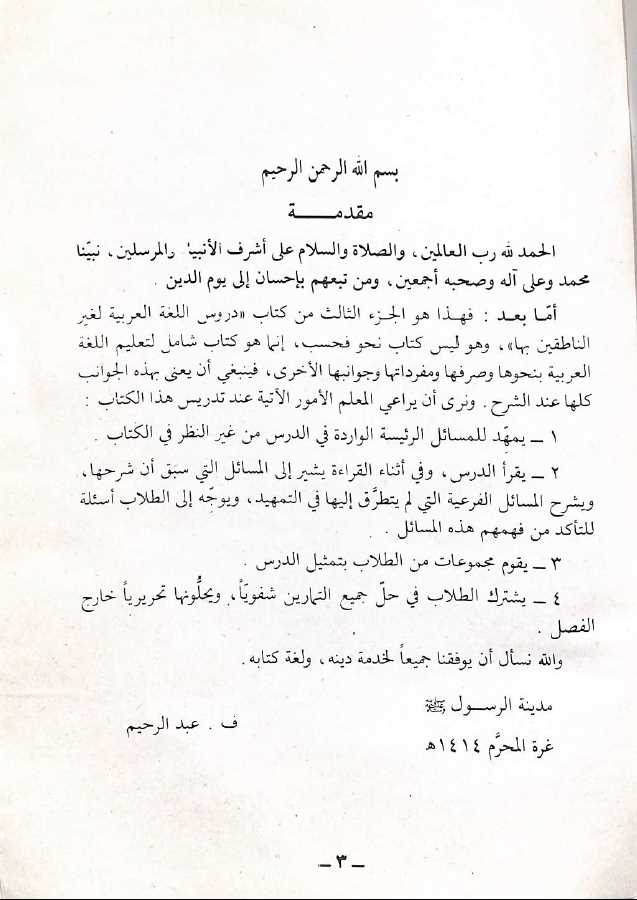 بسم الله الرحمن الرحيم
مقدمـــــة
الحمد لله رب العالمين، والصلاة والسلام على أشرف الأنبياء والمرسلين، نبيّنا
محمد وعلى آله وصحبه أجمعين، ومن تبعهم بإحسان إلى يوم الدين .
أمّا بعد : فهذا هو الجزء الثالث من كتاب «دروس اللغة العربية لغير
الناطقين بها»، وهو ليس كتاب نحو فحسب، إنما هو كتاب شامل لتعليم اللغة
العربية بنحوها وصرفها ومفرداتها وجوانبها الأخرى، فينبغي أن يعنى بهذه الجوانب
كلها عند الشرح . ونرى أن يراعي المعلم الأمور الآتية عند تدريس هذا الكتاب :
١ ــ يمهّد للمسائل الرئيسة الواردة في الدرس من غير النظر في الكتاب .
٢ ــ يقرأ الدرس، وفي أثناء القراءة يشير إلى المسائل التي سبق أن شرحها،
ويشرح المسائل الفرعية التي لم يتطرَّق إليها في التمهيد، ويوجّه إلى الطلاب أسئلة
للتأكد من فهمهم هذه المسائل .
٣ ــ يقوم مجموعات من الطلاب بتمثيل الدرس .
٤ ــ يشترك الطلاب في حلّ جميع التمارين شفويّاً، ويحلُّونها تحريرياً خارج
الفصل .
والله نسأل أن يوفقنا جميعاً لخدمة دينه، ولغة كتابه .
مدينة الرســول ﷺ
ف . عبد الرحيم
غرة المحرَّم ١٤١٤هـ
ــ ٣ ــ